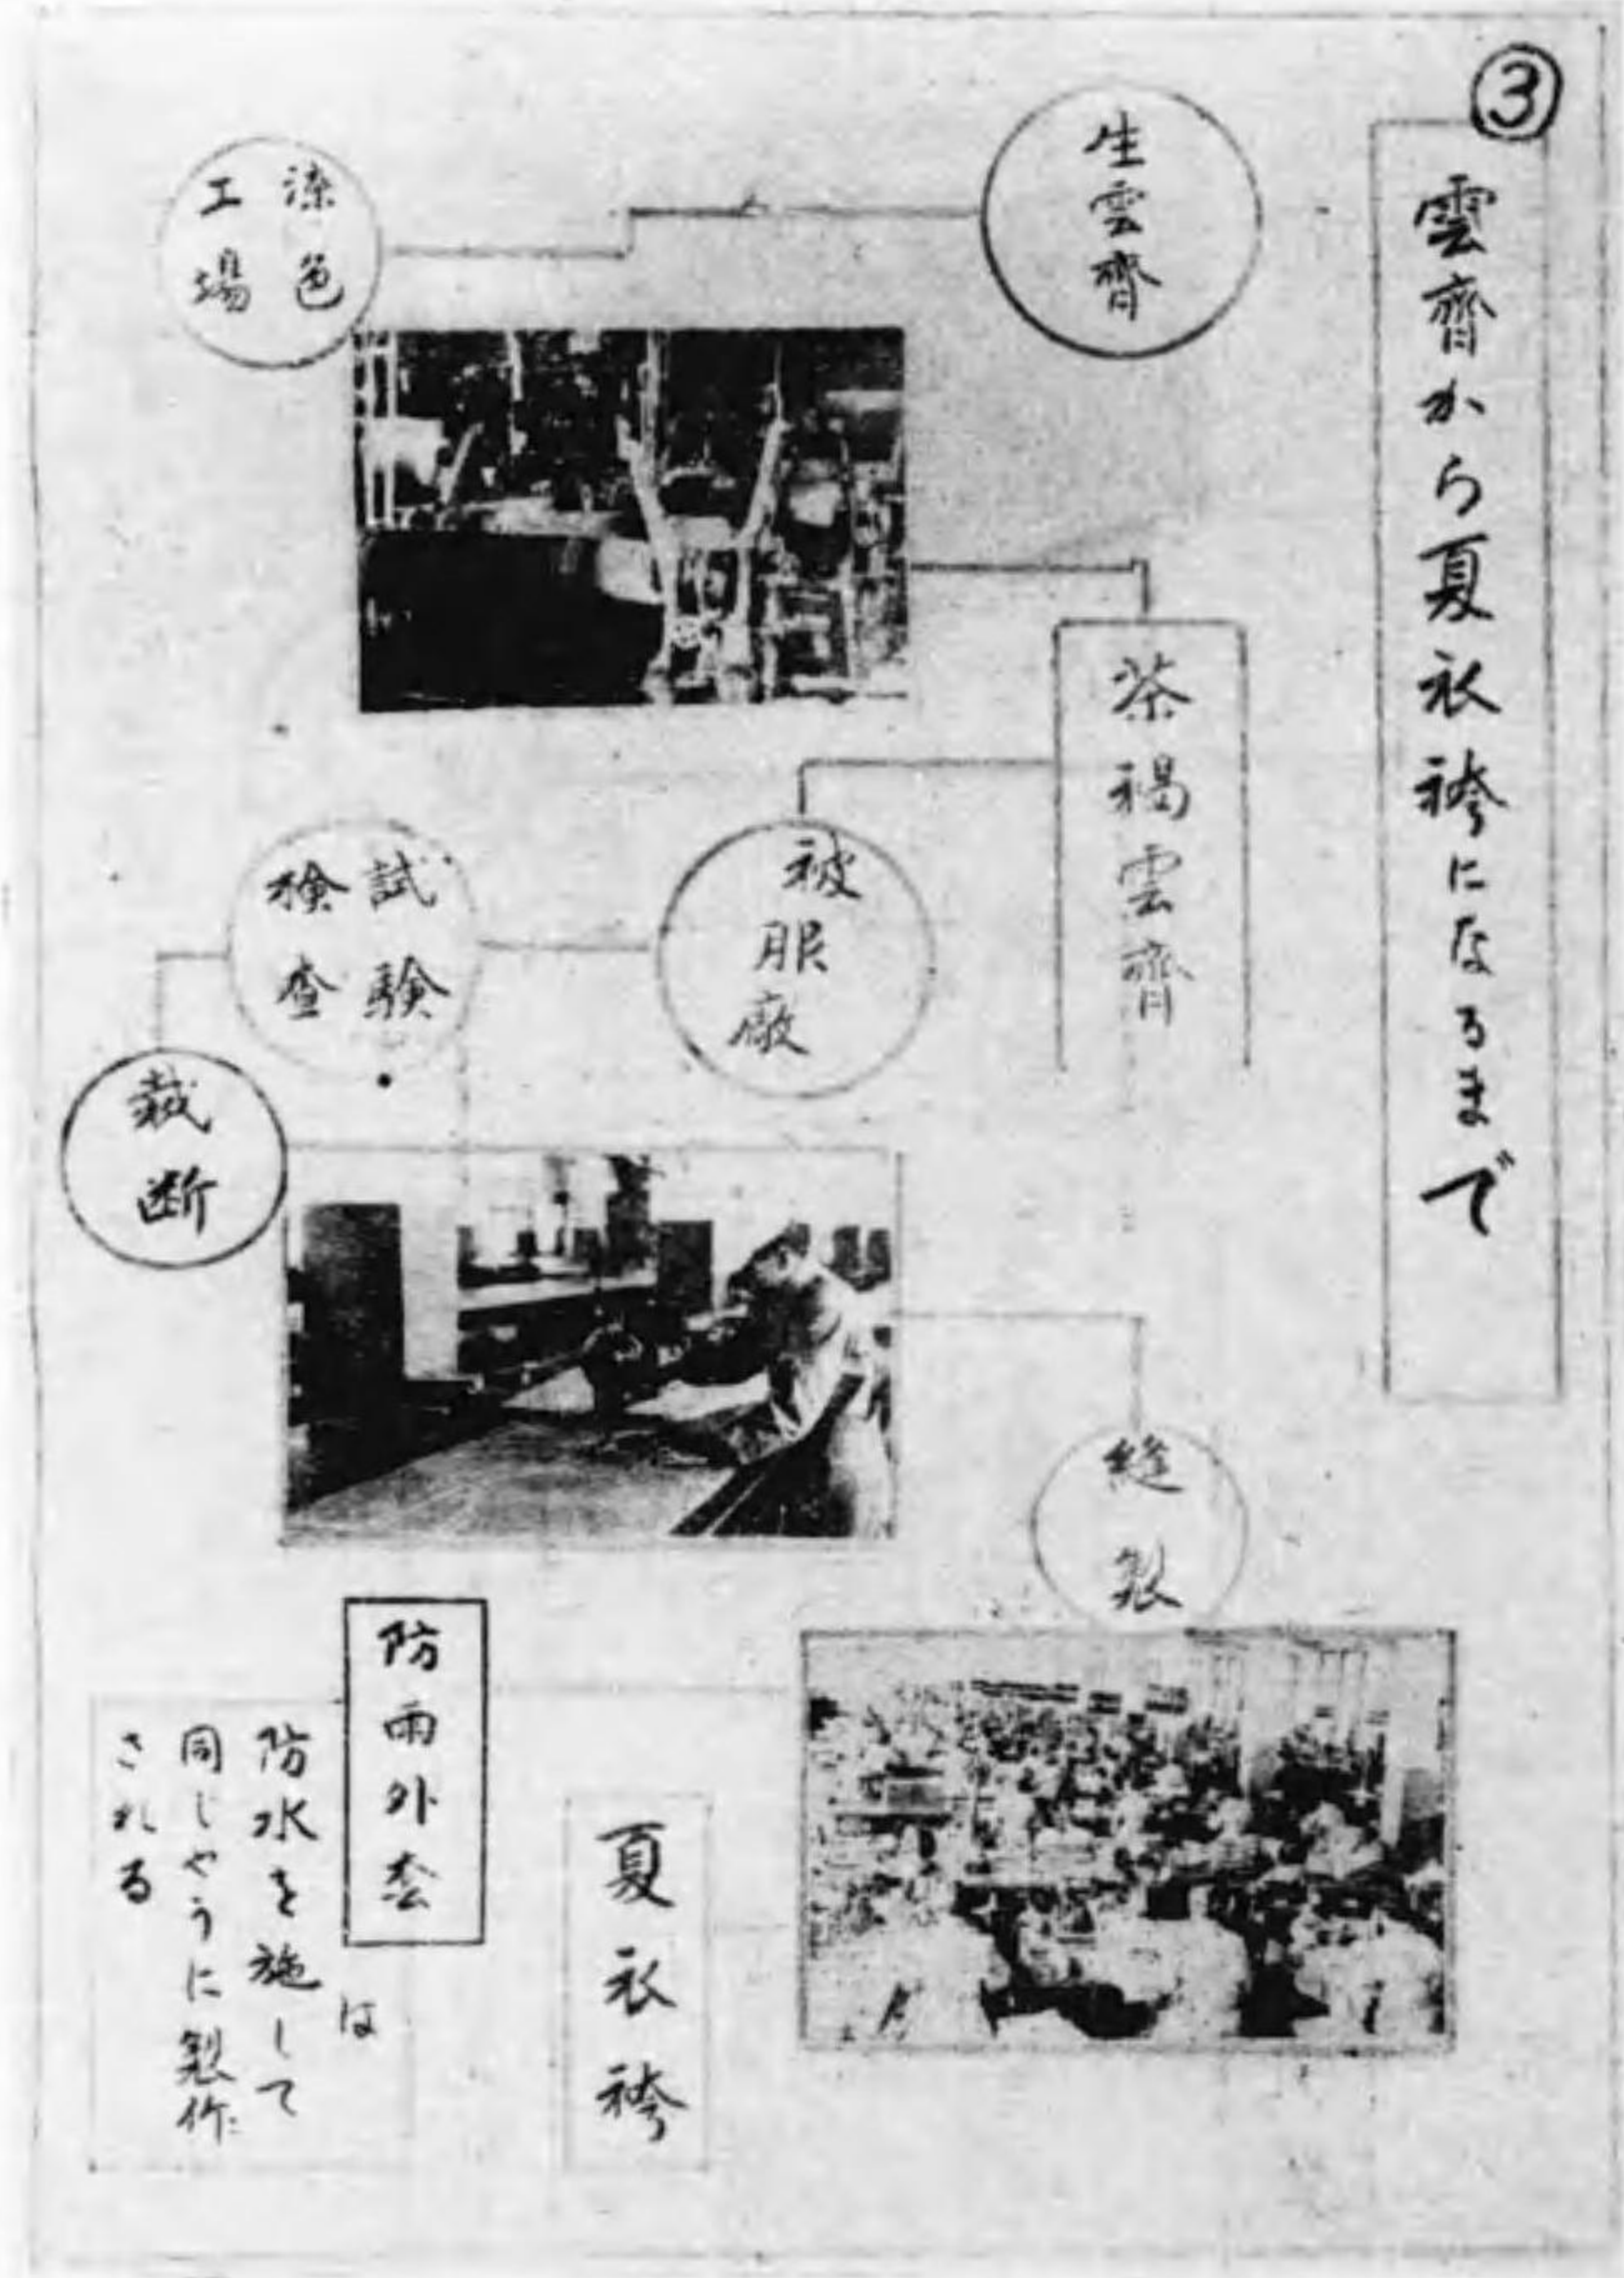 ③
雲齊から夏衣袴になるまで
生雲齊
染色
工場
茶褐雲齊
被服廠
試験
検査
裁断
縫製
夏衣袴
防雨外套
は
防水を施して
同じやうに製作
される